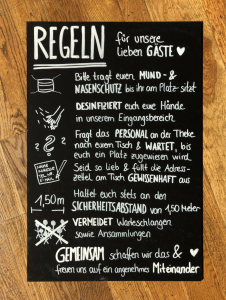 REGELN
für unsere
lieben GÄSTE
Bitte tragt euren MUND - &
NASENSCHUTZ bis ihr am Platz sitzt
DESINFIZIERT euch eure Hände
in unserem Eingangsbereich
Fragt das PERSONAL an der Theke
nach eurem Tisch & WARTET, bis
euch ein Platz zugewiesen wird
Seid so lieb & füllt die Adress-
zettel am Tisch GEWISSENHAFT aus
1,50m
Haltet euch stets an den
SICHERHEITSABSTAND von 1,50 Meter
VERMEIDET Warteschlangen
sowie Ansammlungen
GEMEINSAM schaffen wir das &
freuen uns auf ein angenehmes Miteinander